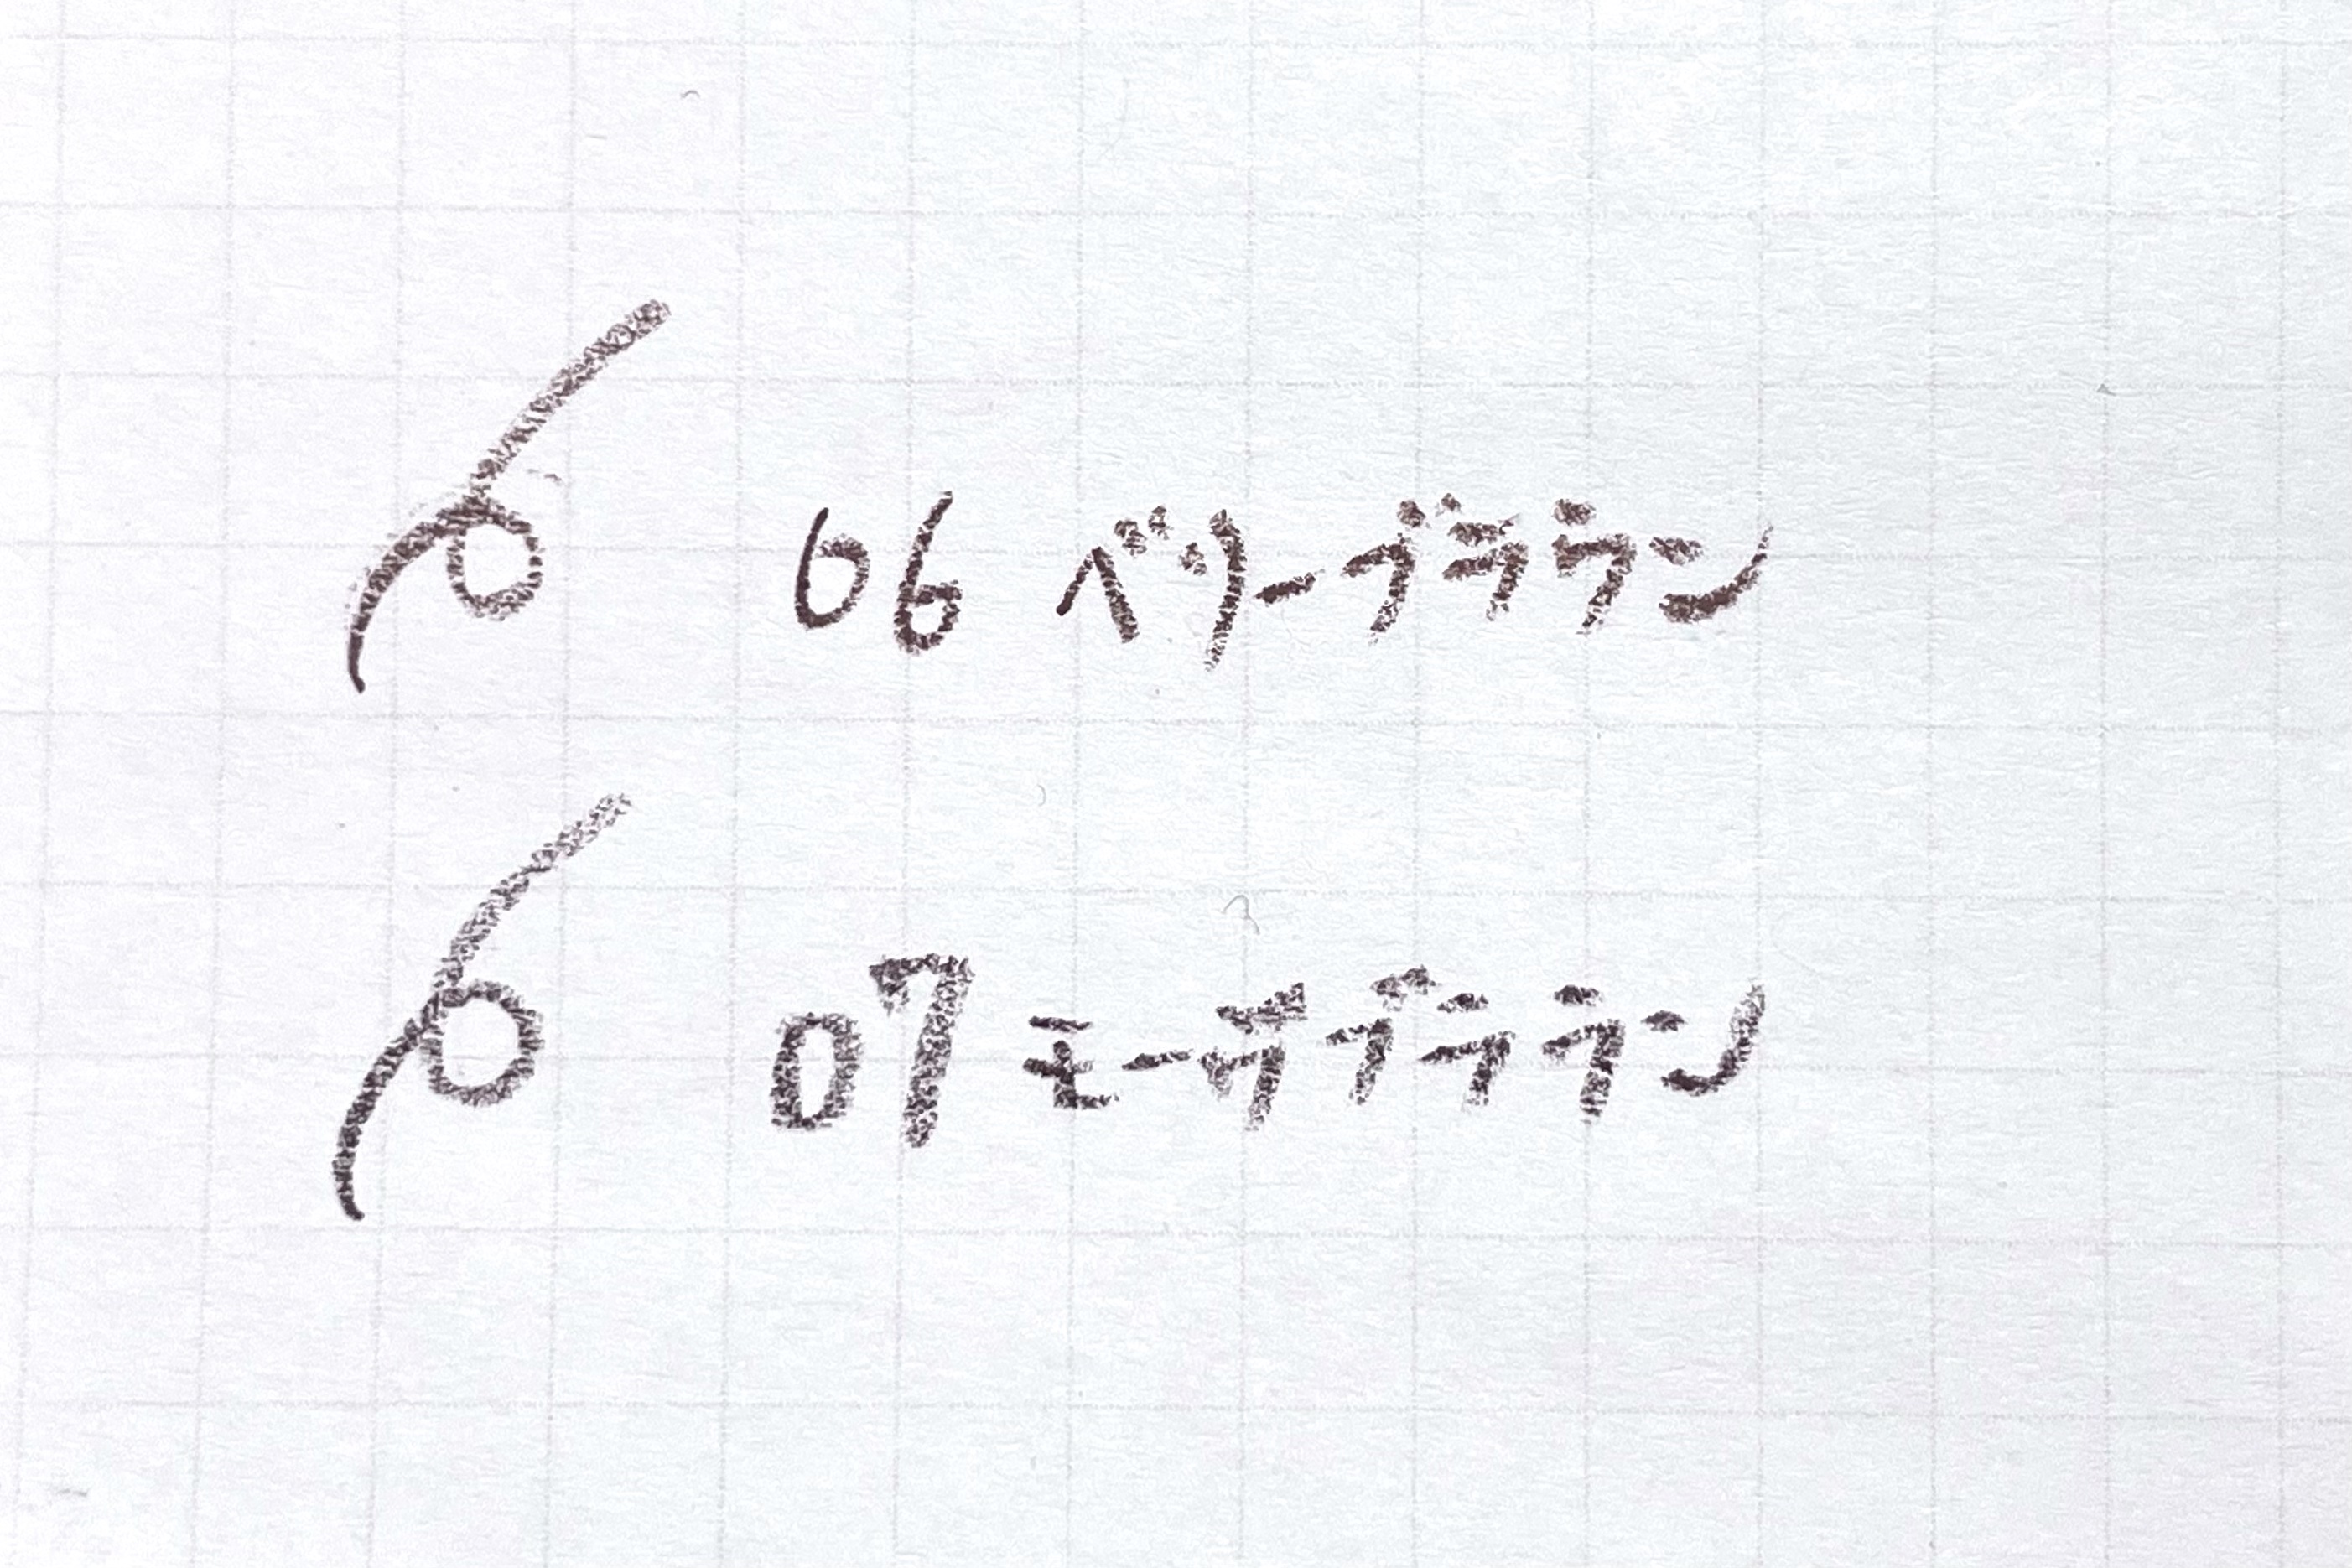 06 ベリーブラウン
07 モーヴブラウン